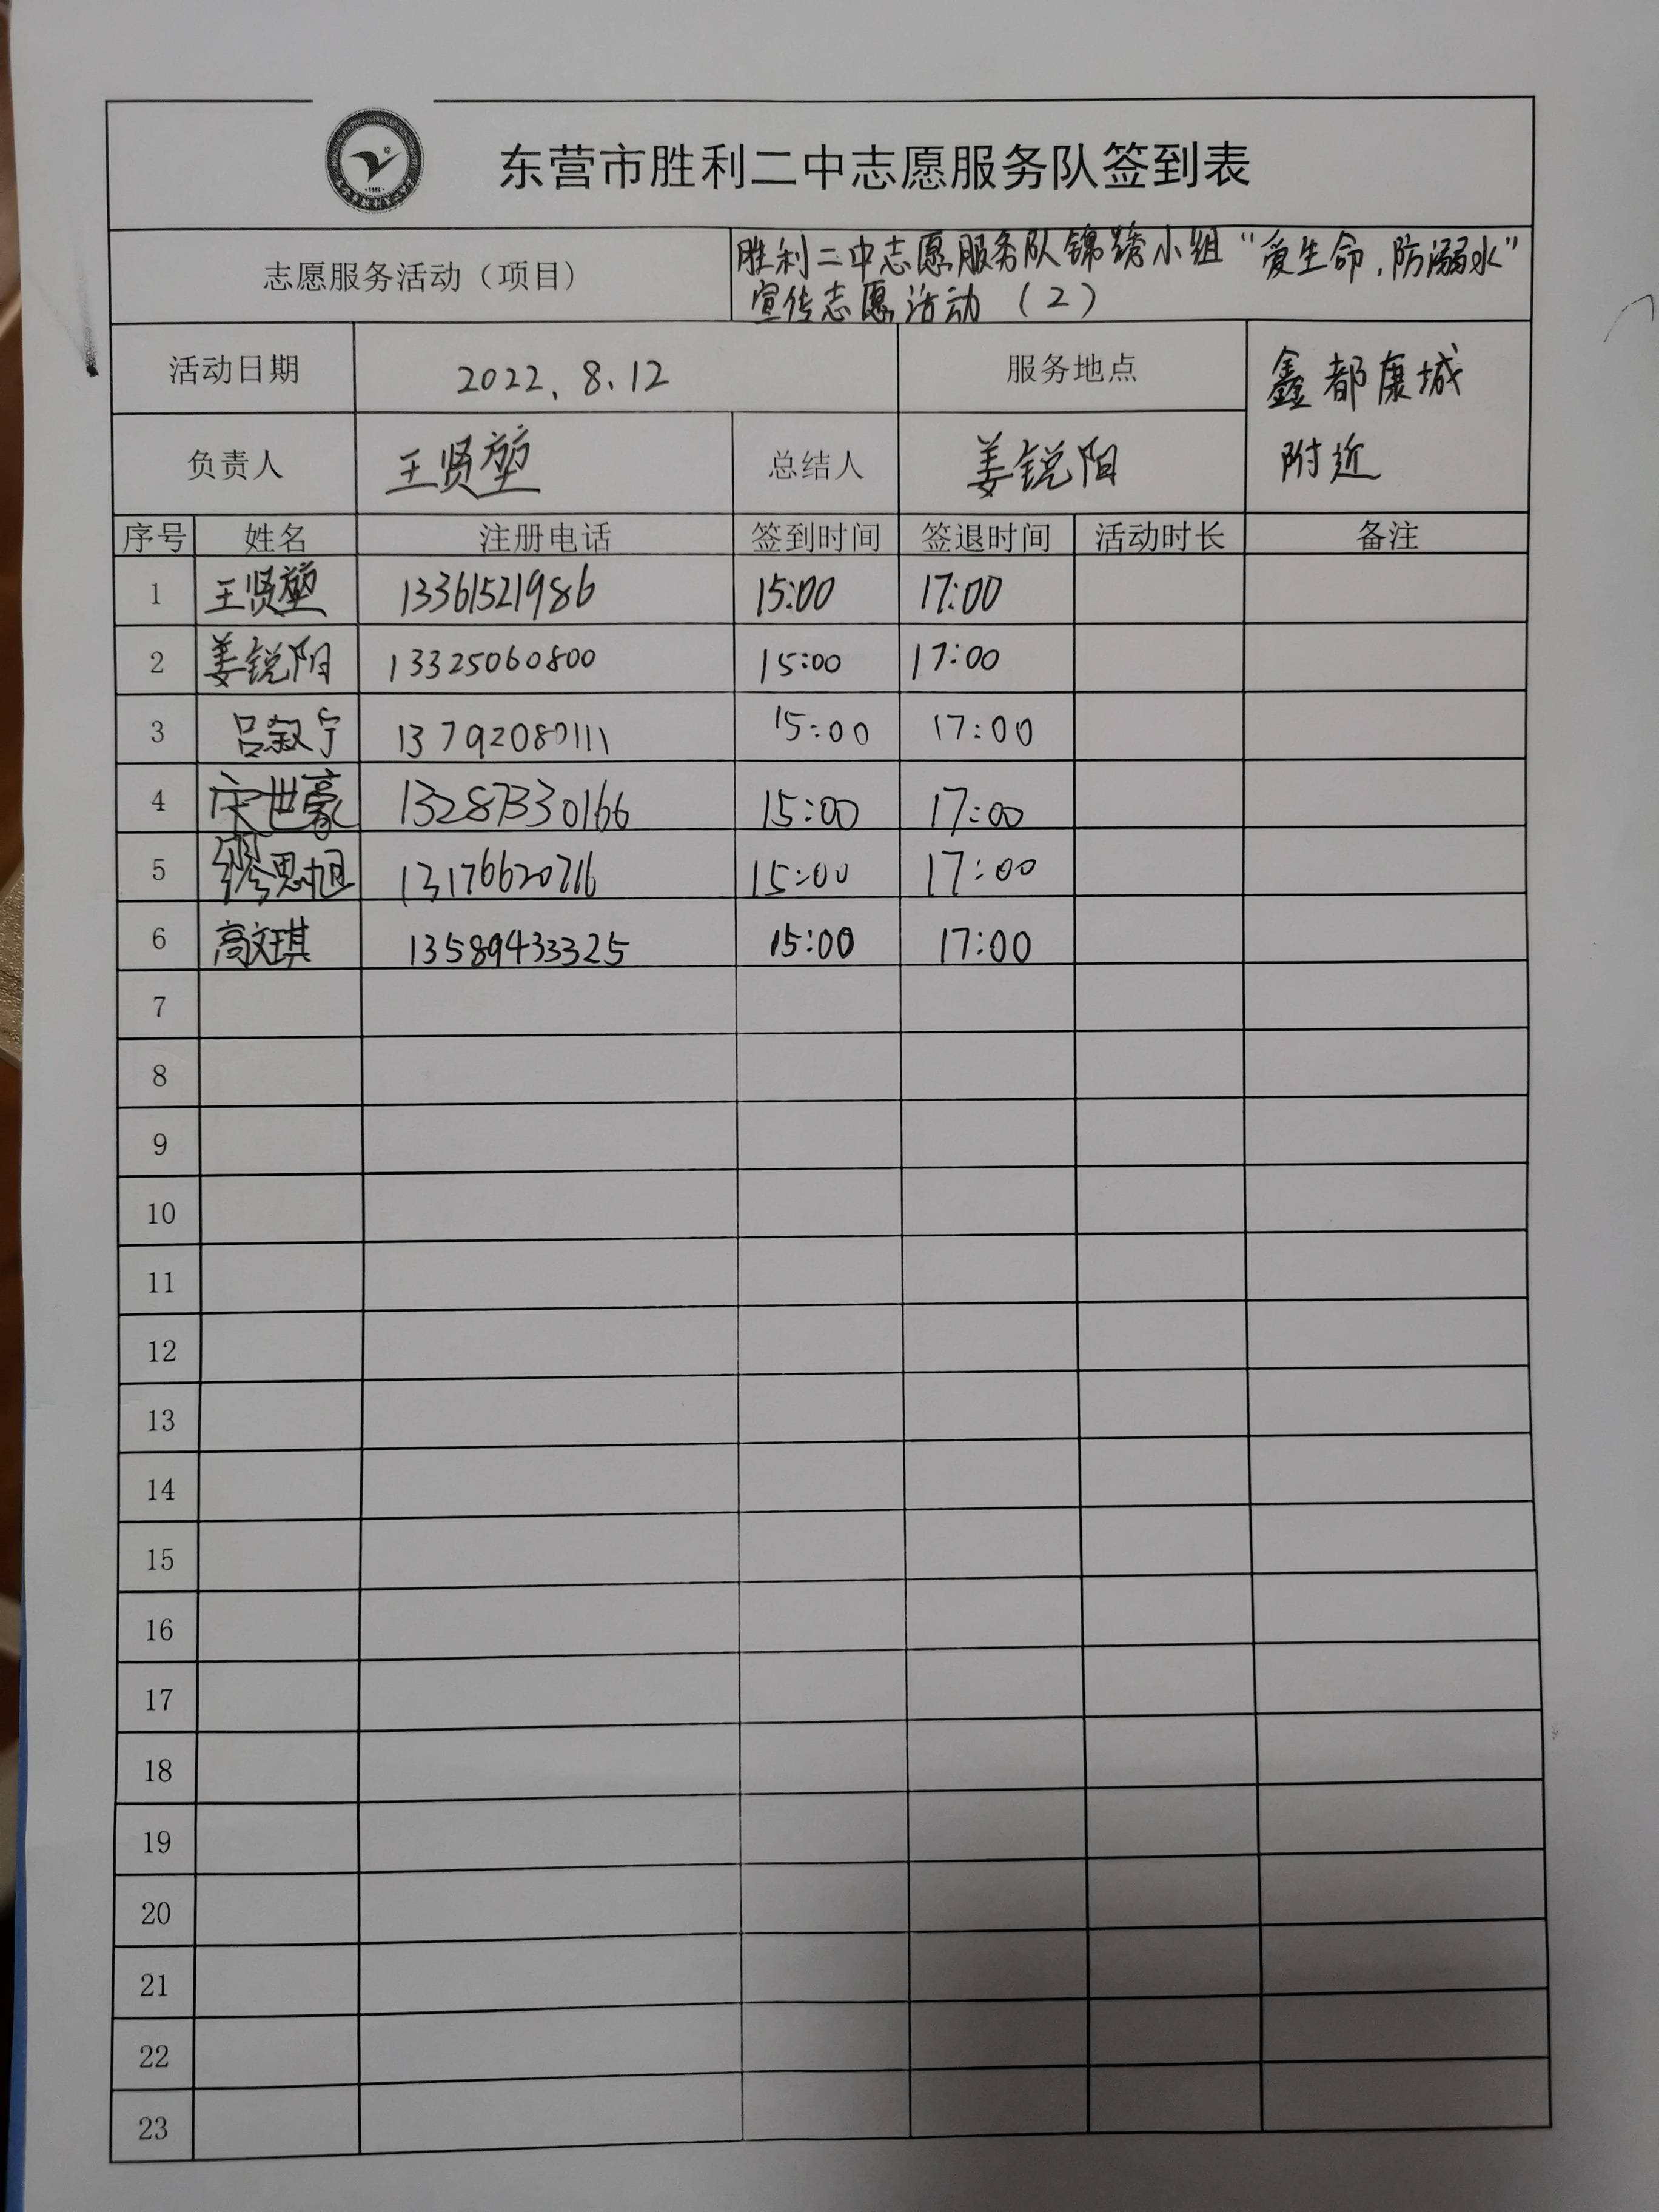 东营市胜利二中志愿服务队签到表
志愿服务活动（项目） 胜利二中志愿服务队锦绣小组“爱生命，防溺水”
宣传志愿活动（2）
活动日期 2022.8.12 服务地点 鑫都康城
附近
负责人 王贤堃 总结人 姜锐阳
序号 姓名 注册电话 签到时间 签退时间 活动时长 备注
1 王贤堃 13361521986 15:00 17:00
2 姜锐阳 13325060800 15:00 17:00
3 吕叙宁 13792080111 15:00 17:00
4 宋世豪 13287330166 15:00 17:00
5 缪思旭 13176620716 15:00 17:00
6 高文琪 13589433325 15:00 17:00
7
8
9
10
11
12
13
14
15
16
17
18
19
20
21
22
23